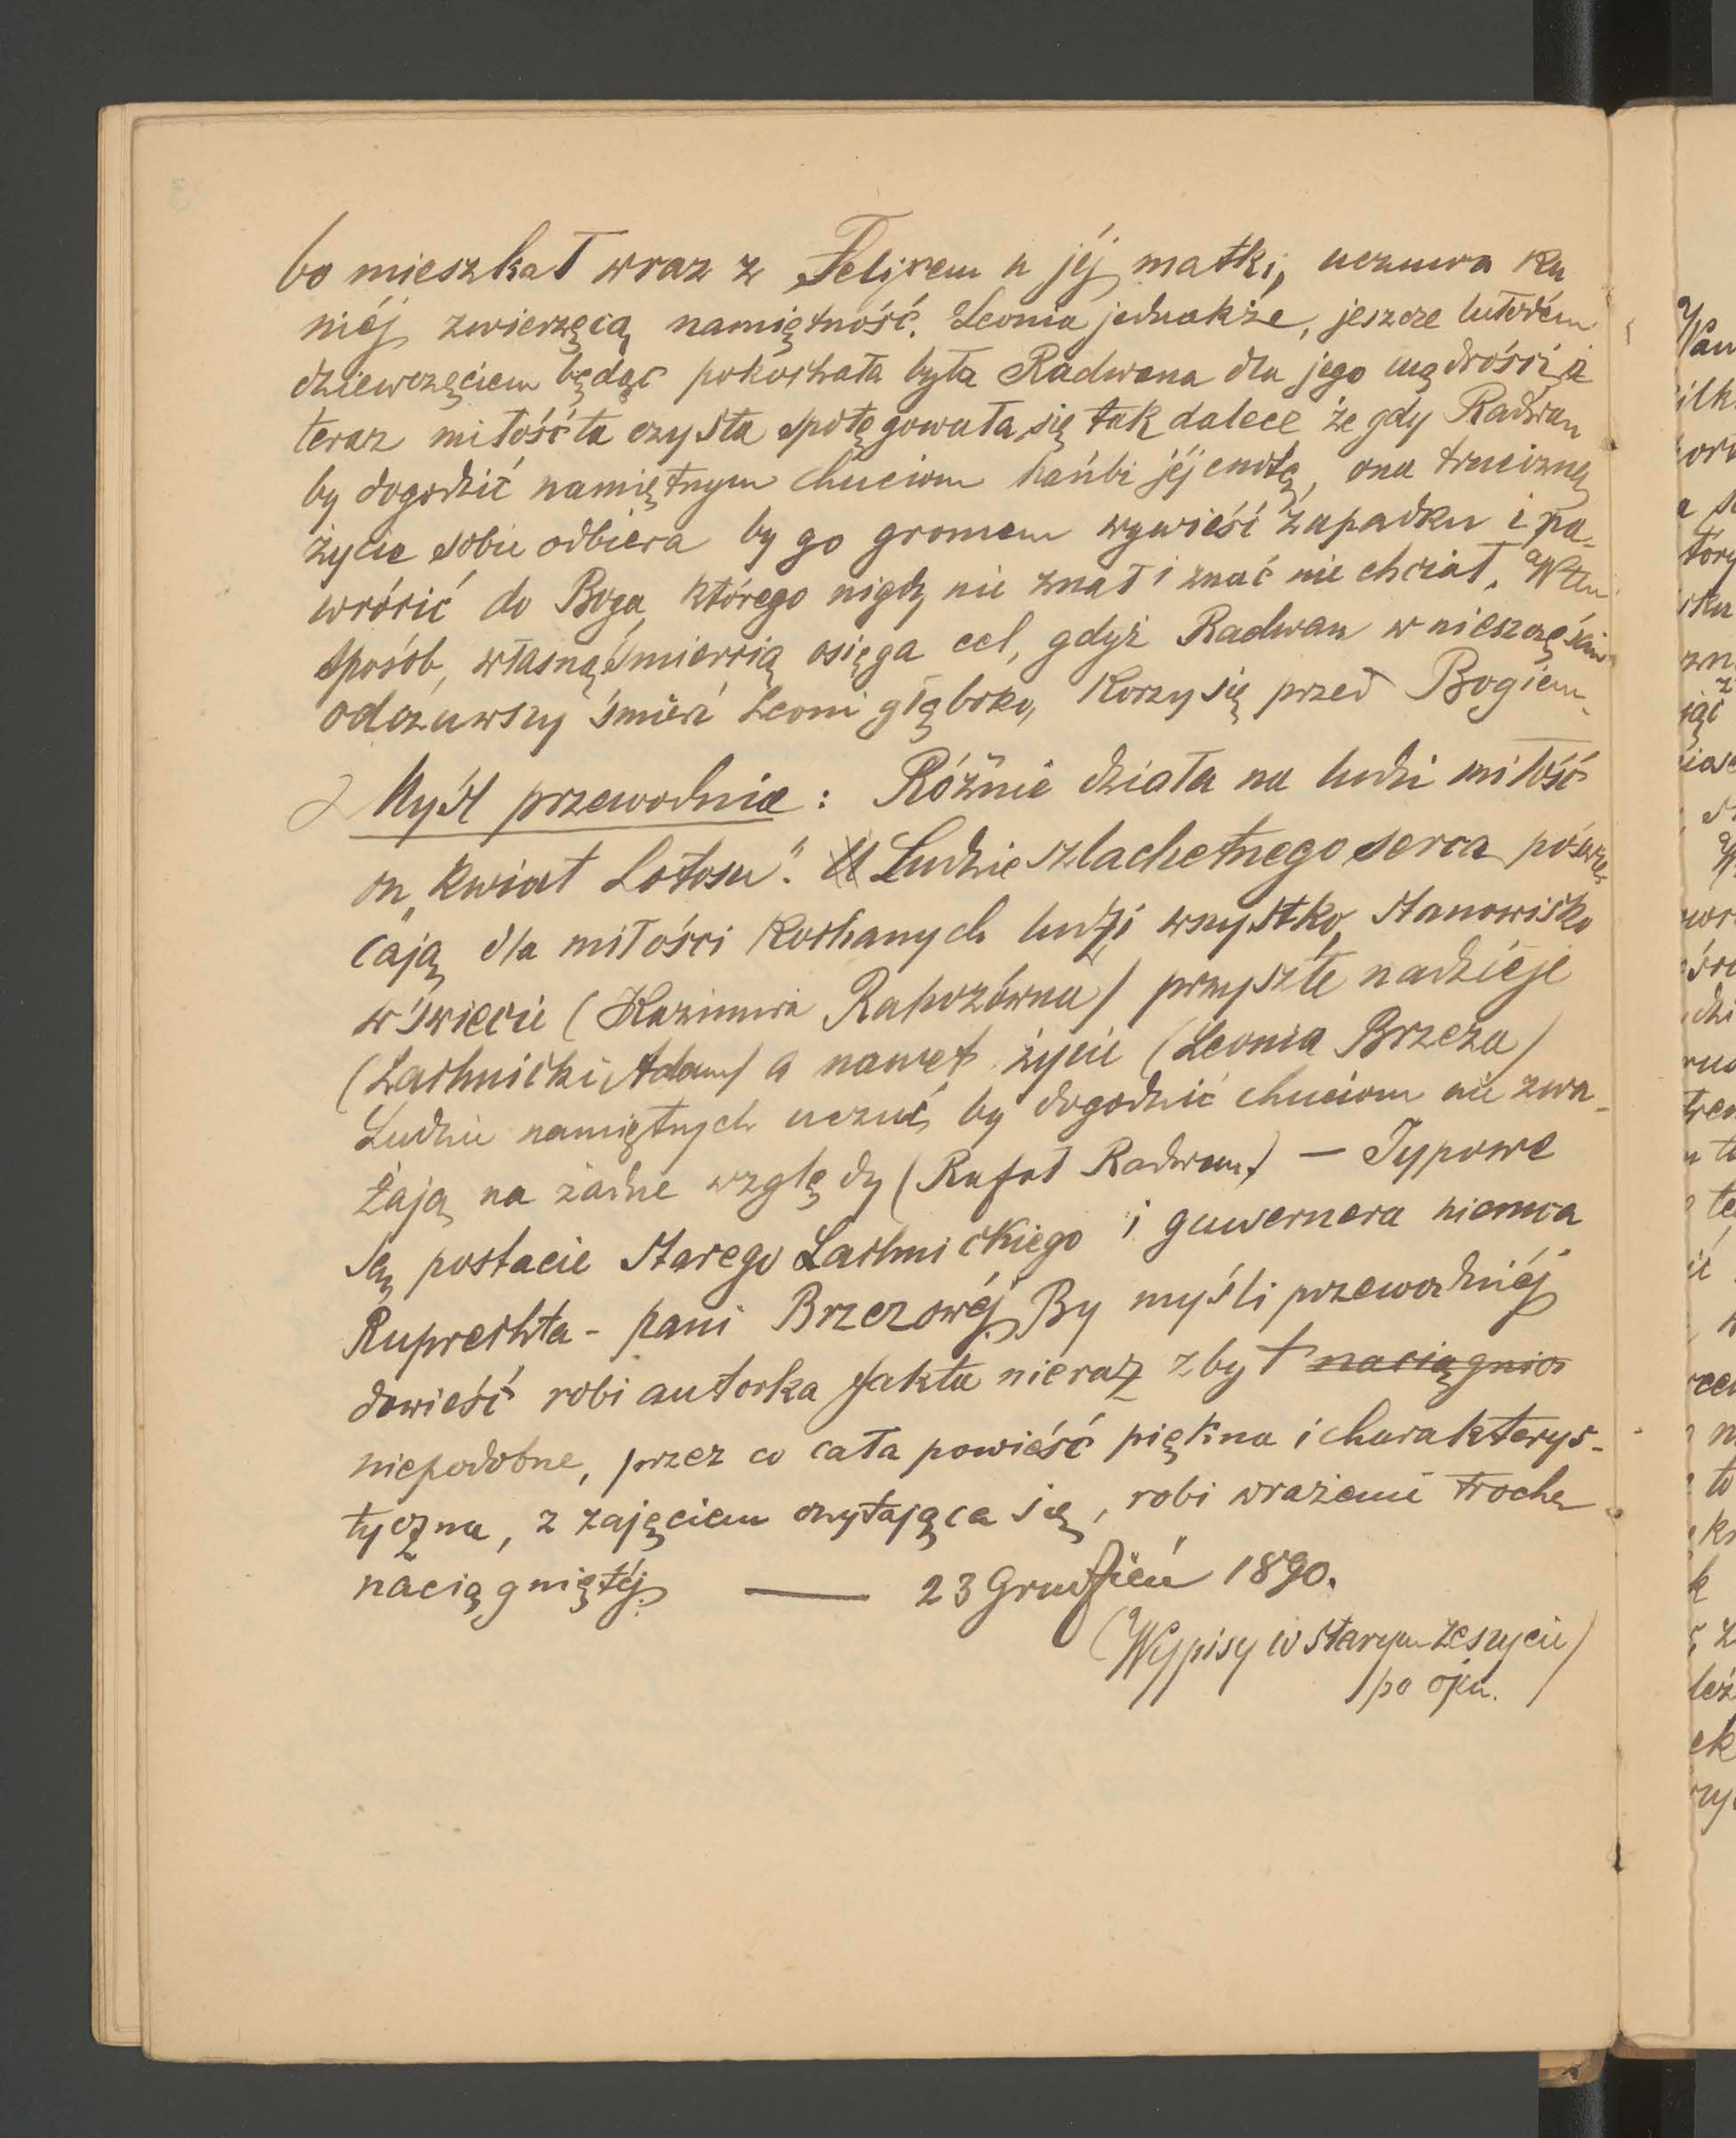 bo mieszkał wraz z Felixem u jéj matki, uczuwa ku
niéj zwierzęcą namiętność. Leonia jednakże, jeszcze
dziewczęciem będąc pokochała była Radwana dla jego mądrości, a
teraz miłość ta czysta spotęgowała się tak dalece że gdy Radwan
by dogodzić namiętnym chuciom hańbi jéj cnotę, ona trucizną
życie sobie odbiera by go gromem wywieść z upadku i na-
wrócić do Boga, którego nigdy nie znał i znać nie chciał. W ten
sposób, własną śmiercią osięga cel, gdyż Radwan w nieszczęściu
odczuwszy śmierć Leoni głęboko, korzy się przed Bogiem.
Myśl przewodnia: Różnie działa na ludzi miłość
on „Kwiat Lotosu". Ludzie szlachetnego serca poświę
cają dla miłości kochanych ludzi wszystko, stanowisko
w świecie (Kazimira Rahozówna) przyszłe nadzieje
(Lachnicki Adam) a nawet życie (Leonia Brzeza)
Ludzie namiętnych uczuć, by dogodzić chuciom nie zwa-
żają na żadne względy (Rafał Radwan) — Typowe
są postacie starego Lachnickiego i guwernera niemca
Ruprechta - pani Brzezowéj. By myśli przewodniéj
dowieść robi autorka fakta nieraz zbyt naciągnio
niepodobne, przez co cała powieść piękna i charakterys-
tyczna, z zajęciem czytająca się, robi wrażenie trochę
naciągniętéj. — 23 Grudzień 1890.
(Wypisy w starym zeszycie)
po ojcu.